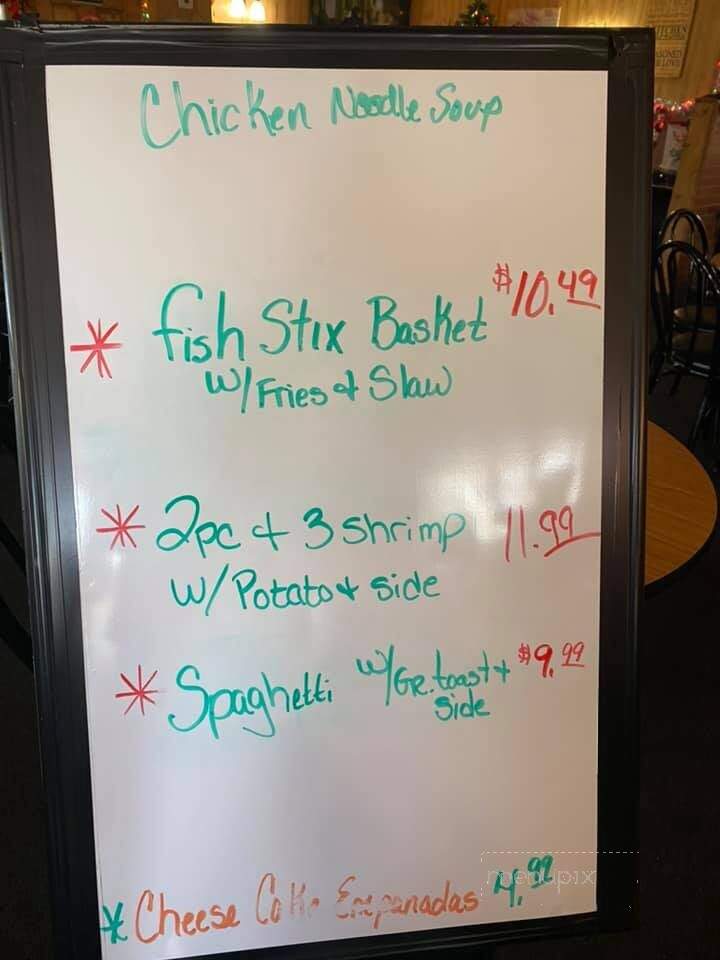 Chicken Noodle Soup
* fish Stix Basket $10.49
w/ Fries & Slaw
* 2pc & 3 shrimp 11.99
w/ Potato & side
* Spaghetti w/ Gr. toast & $9.99
Side
* Cheese Cake Empanadas 4.99
menupix